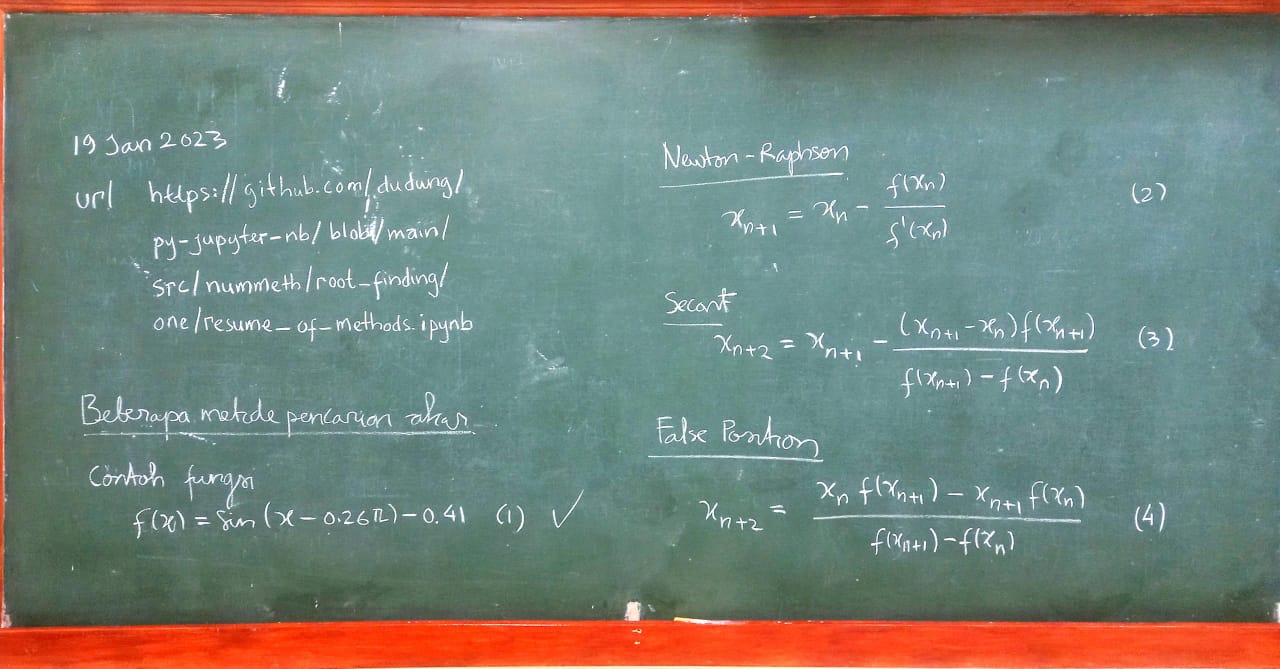 19 Jan 2023
url https://github.com/dudung/
py-jupyter-nb/blob/main/
src/nummeth/root-finding/
one/resume_of_methods.ipynb
Beberapa metode pencarian akar
Contoh fungsi
f(x) = sin (x - 0.26π) - 0.41 (1) ✓
Newton-Raphson
xₙ₊₁ = xₙ - f(xₙ) / f'(xₙ) (2)
Secant
xₙ₊₂ = xₙ₊₁ - (xₙ₊₁ - xₙ) f(xₙ₊₁) / f(xₙ₊₁) - f(xₙ) (3)
False Position
xₙ₊₂ = xₙ f(xₙ₊₁) - xₙ₊₁ f(xₙ) / f(xₙ₊₁) - f(xₙ) (4)